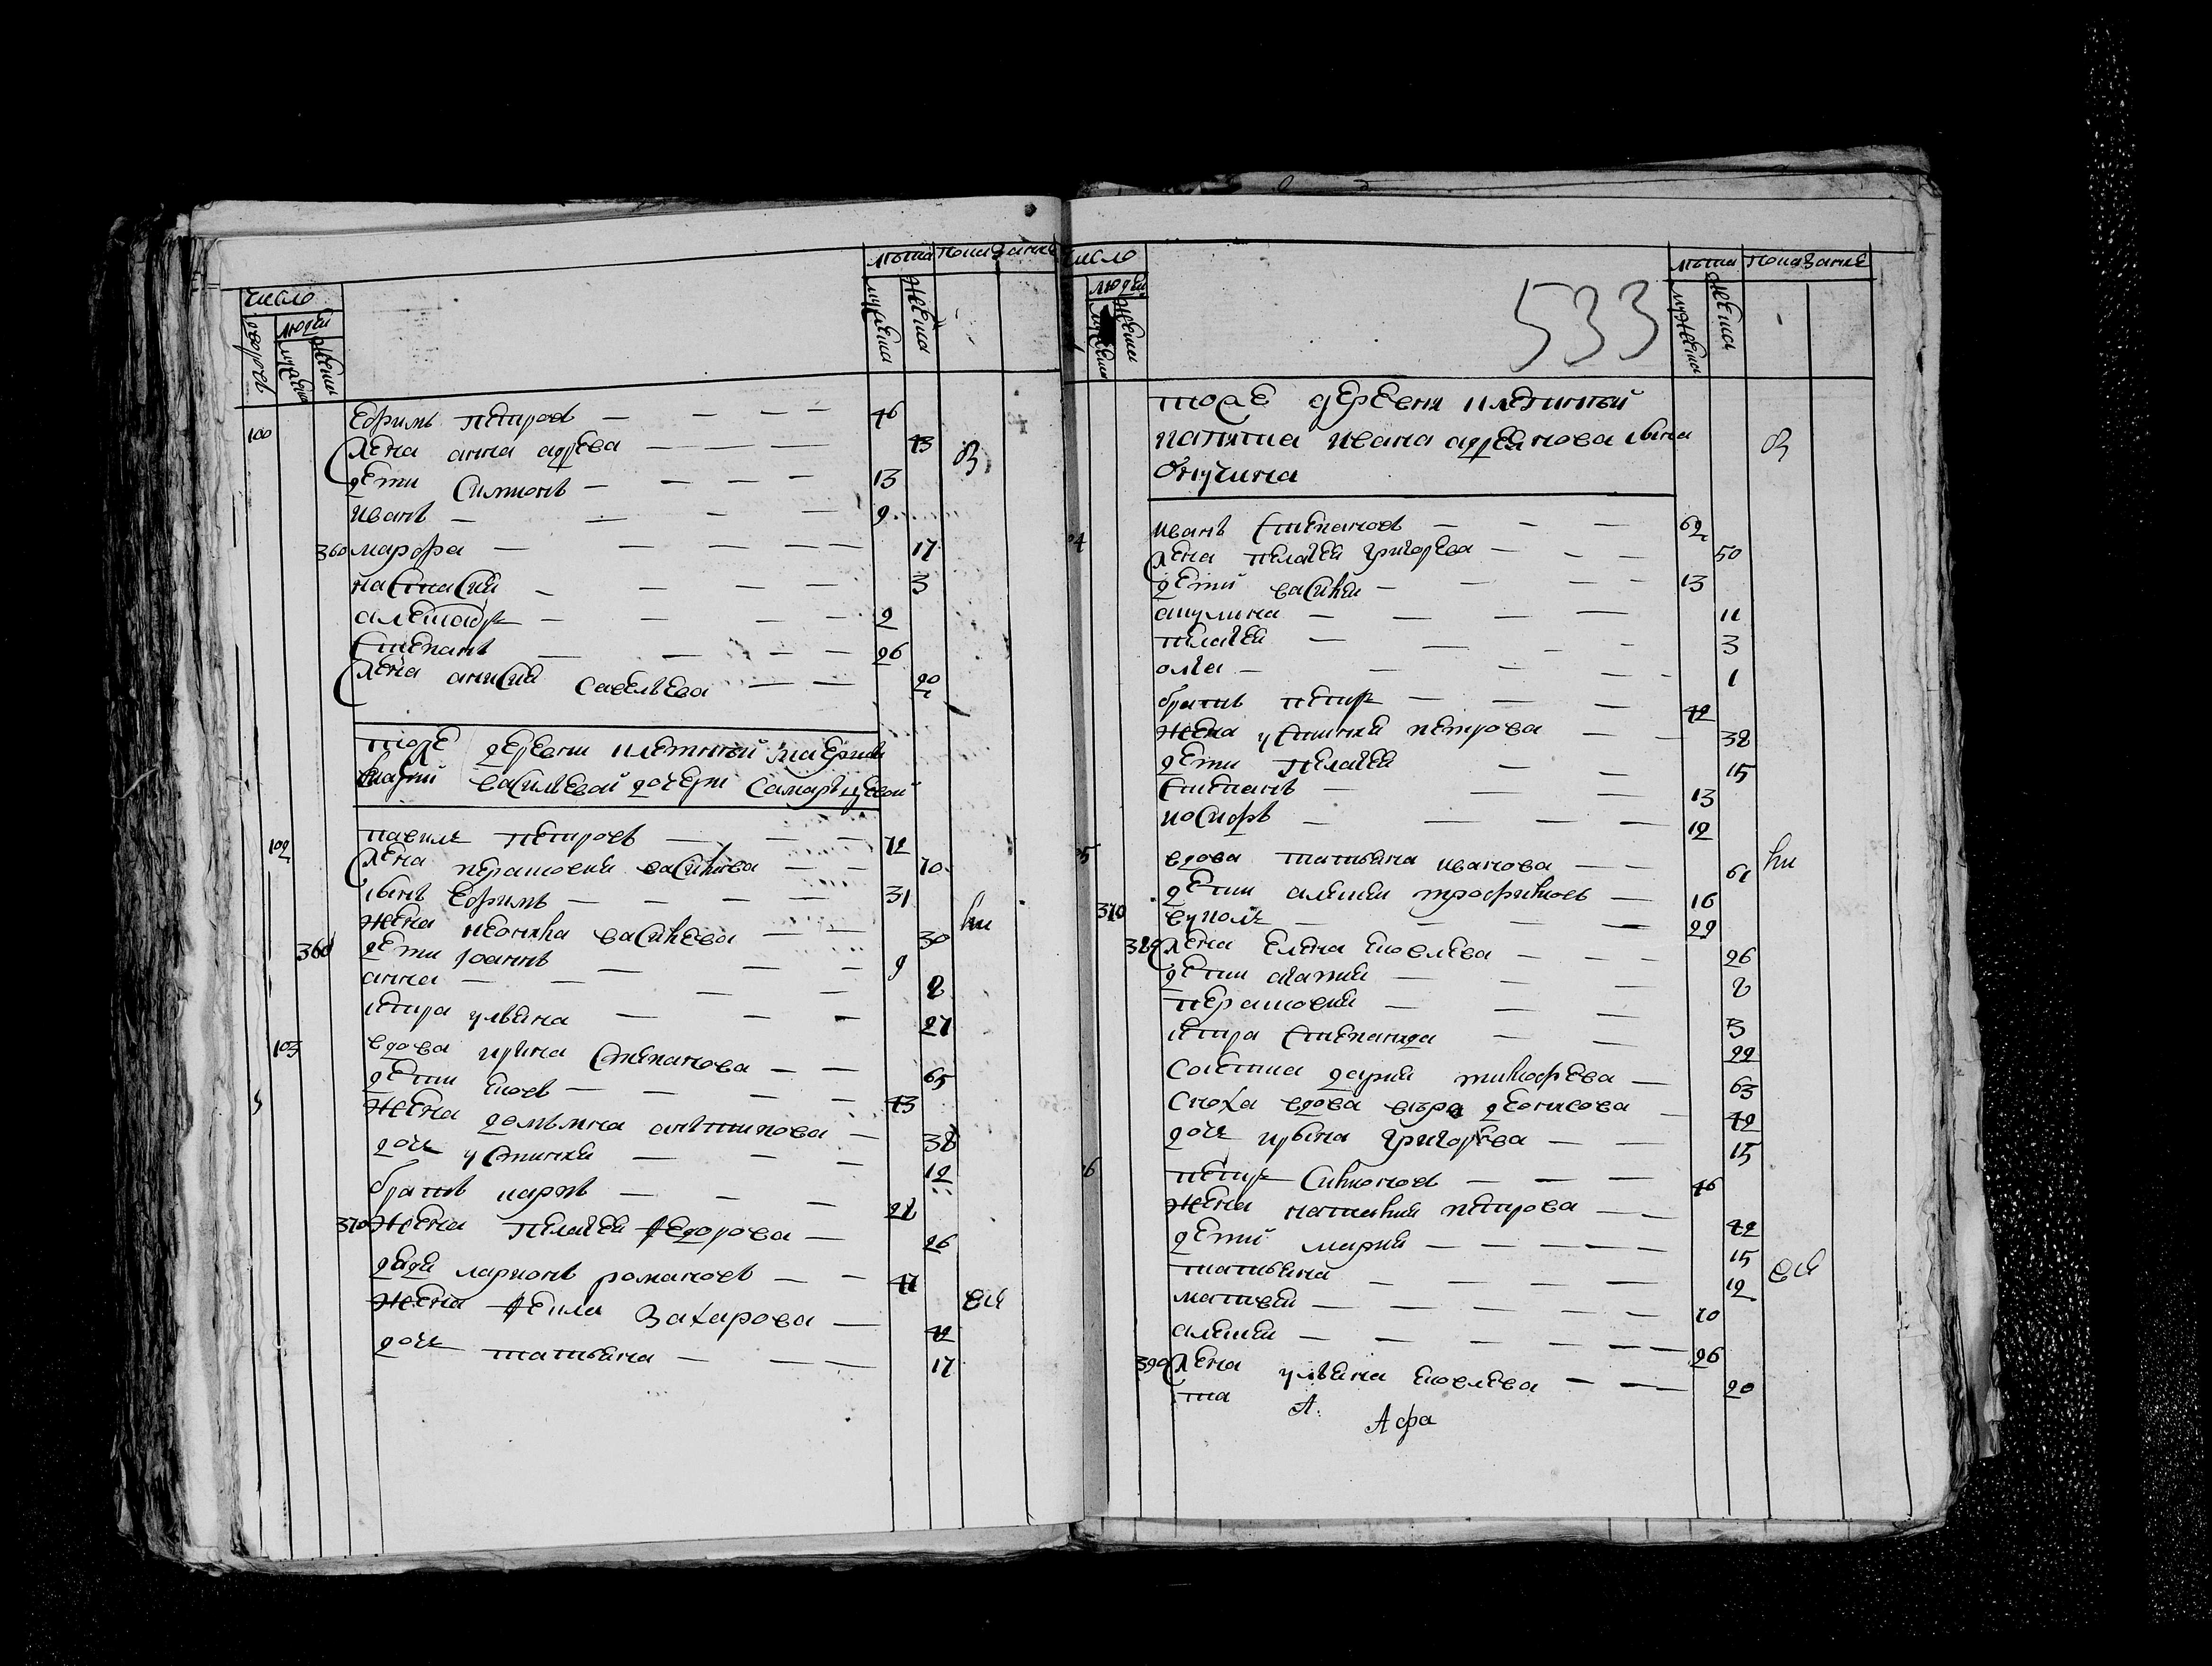 число
дворовъ
людей
мужеска
женска
лѣта
мужеска
женска
показание
100 Ефримъ петровъ 46
жена анна адреева 43
дети Симионъ 13
иванъ 9
360 марфа 17
настасия 3
алексадръ 2
Степанъ 26
жена анисия савельева 20
тоже деревни плетнной
васильевой дочери Самарыцевой
102 павилъ петровъ 72
жена парасковия василиева 70
сынъ Ефримъ 31
жена васильева 30
360 дети иоаннъ 9
анна 2
сестра ульяна 27
103 вдова ирина Степанова 65
дети яковъ 43
жена домьяна антипова 38
дочь устиния 12
братъ карпъ 28
370 жена пелагея федорова 26
дядя ларионъ романовъ 47
жена фекла захарова 42
дочь татьяна 17
число
людей
мужеска
женска
лѣта
мужеска
женска
показание
533
тоже деревня плетнной
капитана ивана адреянова сына
Онучина
04 иванъ Степановъ 62
жена пелагея григорева 50
дети василий 13
акулина 11
пелагея 3
олга 1
братъ петръ 42
жена устиния петрова 38
дети пелагея 15
Степанъ 13
иосифъ 12
05 вдова татьяна иванова 61
дети алексей трофимовъ 16
370 вуколъ 29
380 жена елена яковлева 26
дети агафия 2
парасковия 3
сестра Степанида 22
Солдатка дария тимофеева 63
Сноха вдова вѣра денисова 42
дочь ирина григорева 15
06 петръ Симионовъ 46
жена наталия петрова 42
дети мария 15
татьяна 12
матвей 10
алексей 26
390 жена ульяна яковлева 20
та А. Афа